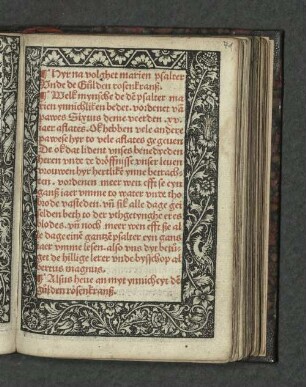 ¶ Hyr na volghet marien psalter
Vnde de Gülden rosenkrantz.
¶ Welk mynsche de dē psalter ma
rien ynnichlikē bedet. vordenet vā
pawes Sixtus deme veerden .xv.
iaer aflates. Ok hebben vele andere
pawese hyr to vele aflates ge geuen
De ok dat lident vnses benedyeden
heren vnde er dröffnisse vnser leuen
vrouwen hyr hertlikē ynne betrach
ten. vordenen meer wen effte se eyn
gantz iaer vmme to water vnde to
brode vasteden. vñ sik alle dage gei
selden beth to der vthgetynghe eres
blodes. vñ noch meer wen effte se al
le dage einē gantzē psalter een gans
iaer vmme lesen. also vns dyt betü
get de hillige lerer vnde bysschop al
bertus magnus.
¶ Alsus heue an myt ynnicheyt dē
gülden rosenkrantz.